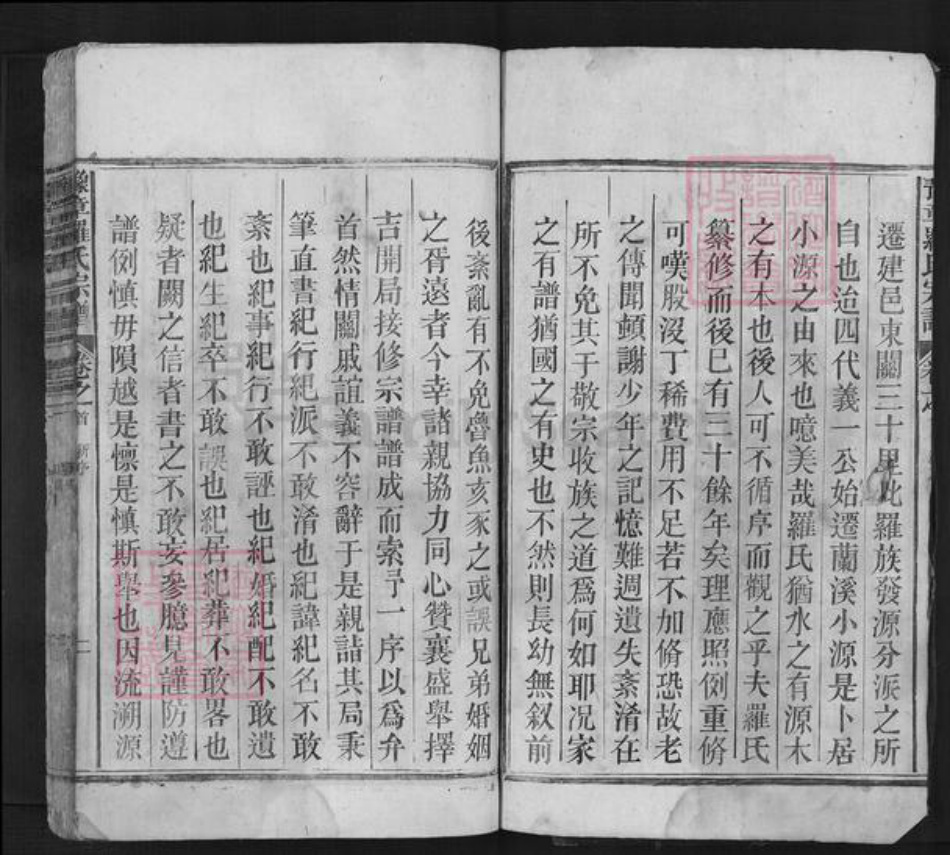 遷建邑東關三十里此羅族發源分派之所
自也迨四代義一公始遷蘭溪小源是卜居
小源之由來也噫美哉羅氏猶水之有源木
之有本也後人可不循序而觀之乎夫羅氏
纂修而後巳有三十餘年矣理應照例重脩
可嘆股沒丁稀費用不足若不加脩恐故老
之傳聞頓謝少年之記憶難週遺失紊淆在
所不免其于敬宗收族之道爲何如耶况家
之有譜猶國之有史也不然則長幼無叙前
後紊亂有不免魯魚亥豕之或誤兄弟婚姻
之胥遠者今幸諸親協力同心贊襄盛舉擇
古開局接修宗譜譜成而索予一序以爲弁
首然情關戚誼義不容辭于是親詣其局秉
筆直書紀行紀派不敢淆也紀諱紀名不敢
紊也紀事紀行不敢誣也紀婚紀配不敢遺
也紀生紀卒不敢誤也紀居紀葬不敢畧也
疑者闕之信者書之不敢妄參臆見謹防遵
譜例慎毋隕越是懔是慎斯舉也因流溯源
豫章羅氏宗譜
卷之首
二